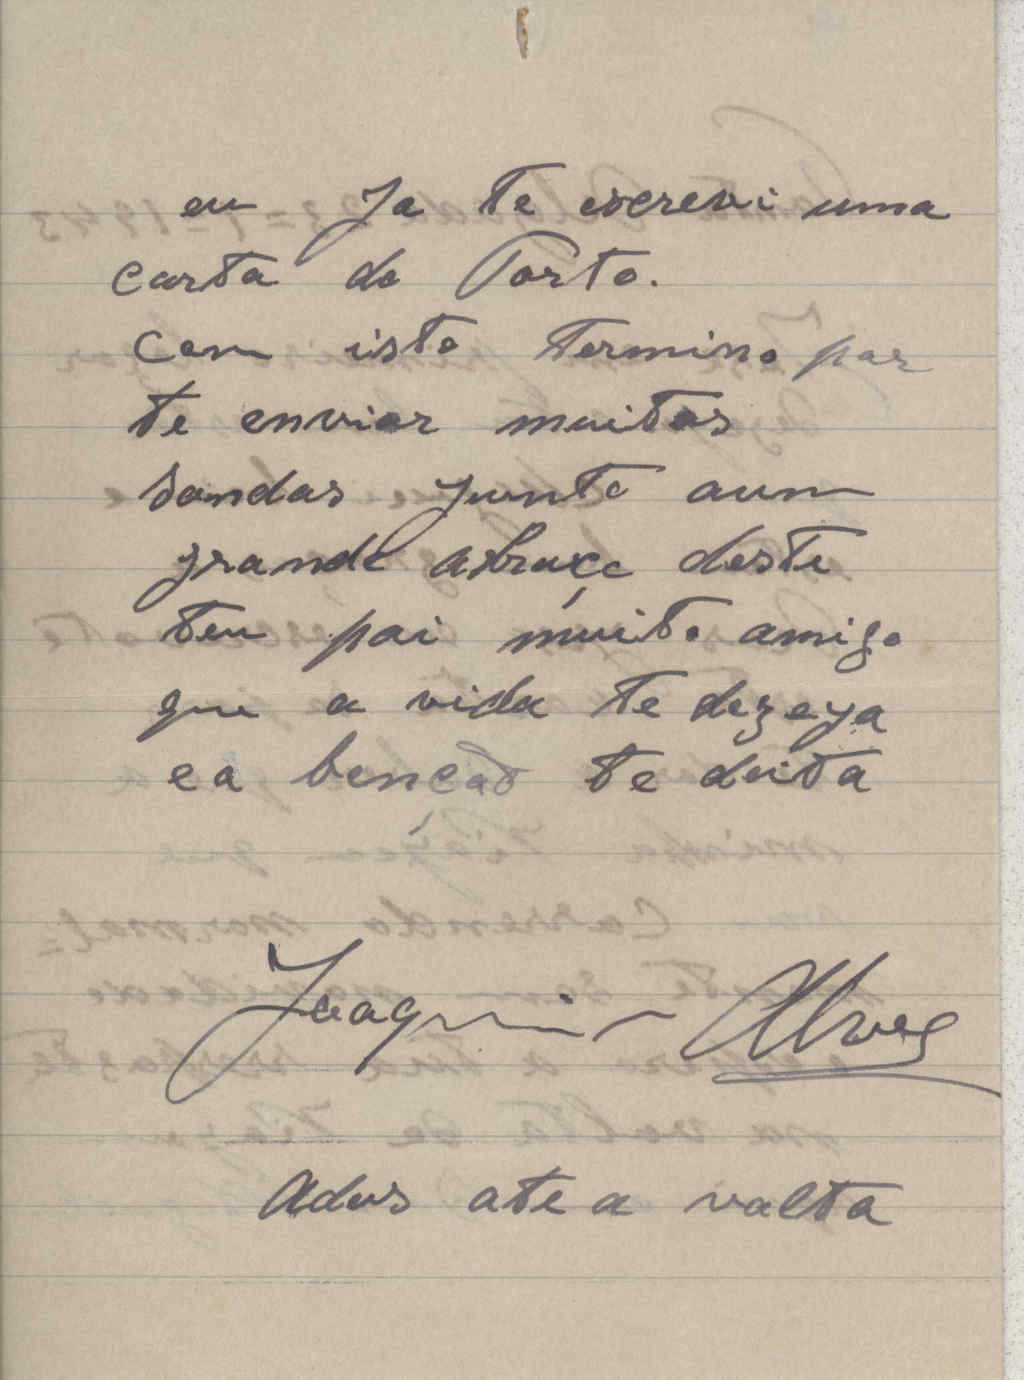 eu Ja te escrevi uma
carta do Porto.
Com isto termino por
te enviar muitas
saudas junto aum
grande abraço deste
teu pai muito amigo
que a vida te dezeya
e a bençao te deita
Joaquim Alves
Adus ate a valta